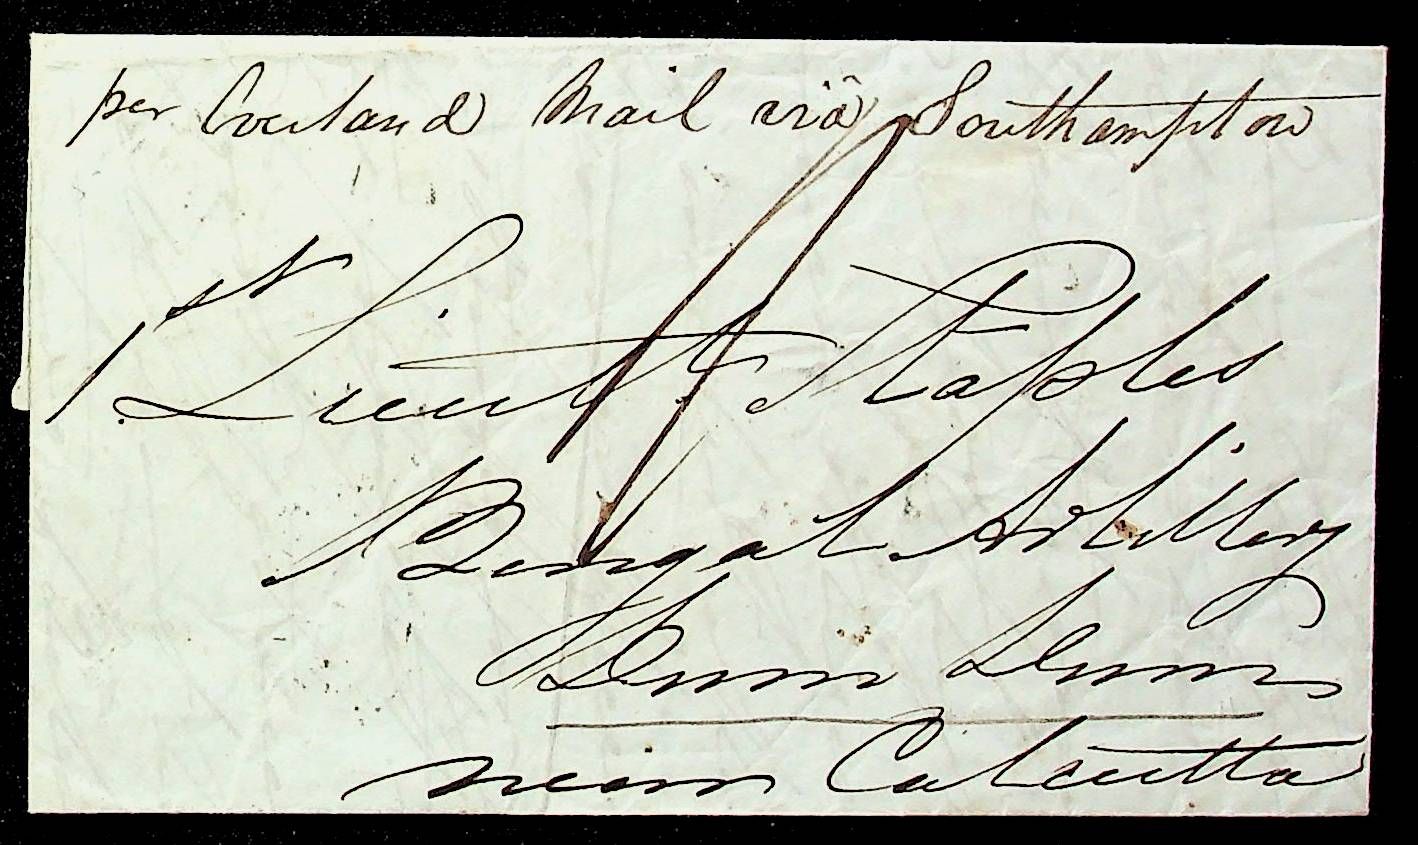 per Overland Mail viâ Southampton
1st Lieut Staples
Bengal Artillery
Dum Dum
near Calcutta